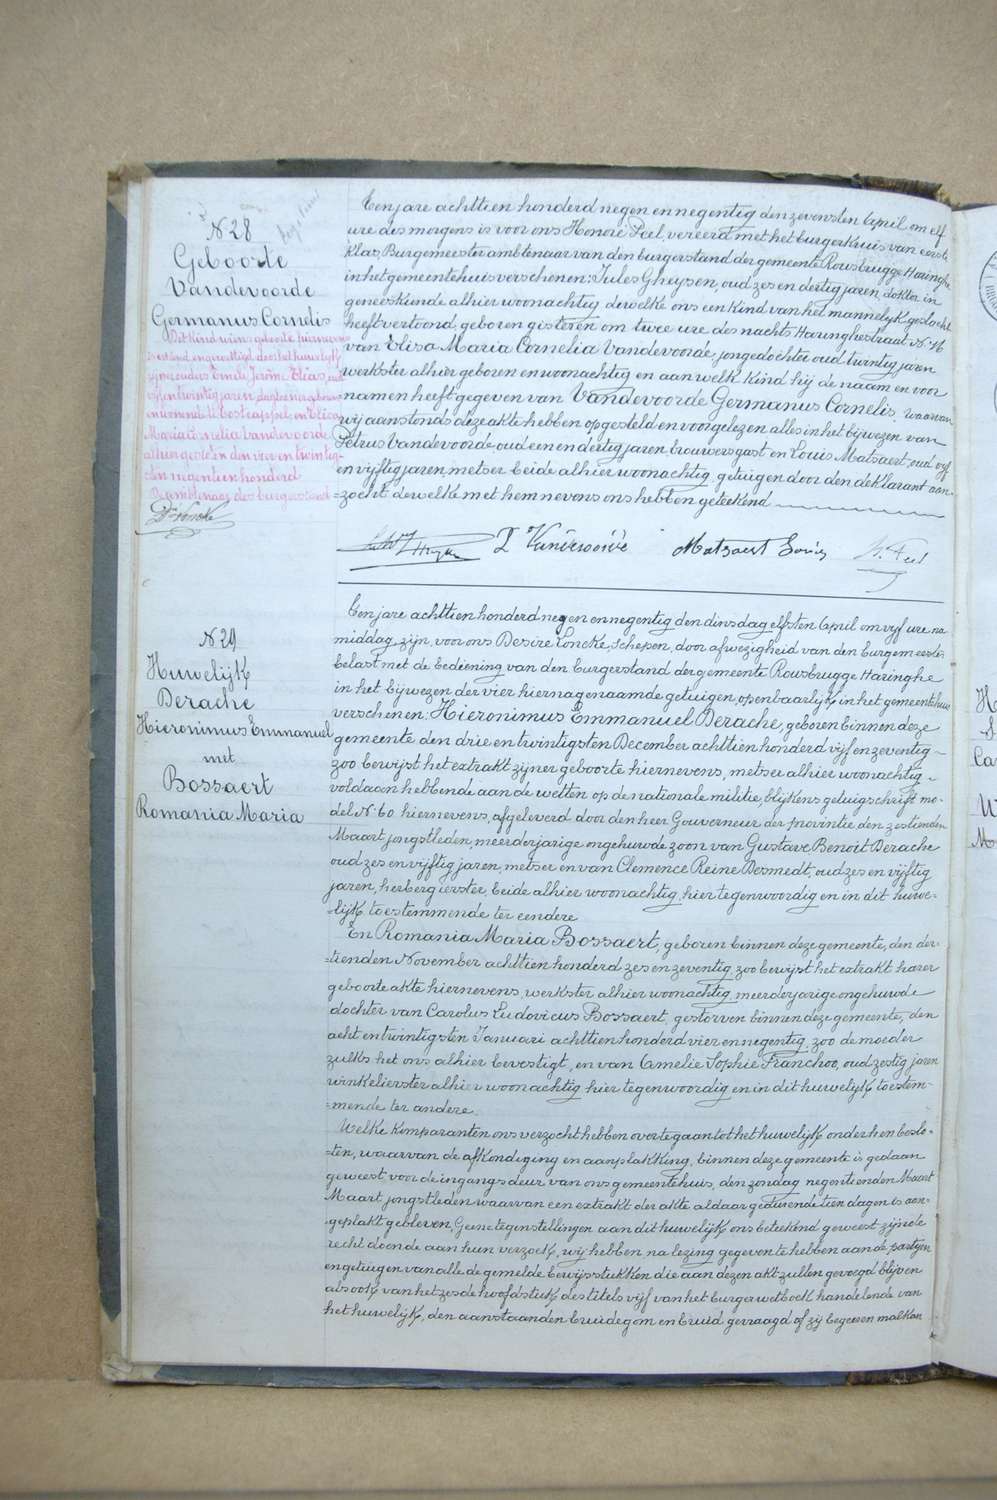 N 28
Geboorte
Vandevoorde
Germanus Cornelis
Dit kind is wiens geboorte hiernevens
is erkend en gewettigd door het huwelijk
Emile Jerôme Elias, oud
vijf en twintig jaren, dagloner geboren
en wonende te Oostcappel en Elisa
Maria Cornelia Vandevoorde
alhier gesloten den vier en twintig-
sten negentien honderd
De ambtenaar des burgerstand
Een jare achttien honderd negen en negentig den zevensten April om elf
ure des morgens is voor ons Honoré Peel, vereerd met het burgerkruis van eerste
klas, Burgemeester ambtenaar van den burgerstand der gemeente Rousbrugge Haringhe
in het gemeentehuis verschenen: Jules Gheysen, oud zes en dertig jaren, doktor in
geneeskunde alhier woonachtig dewelke ons een kind van het mannelijk geslacht
heeft vertoond, geboren gisteren om twee ure des nachts Haringhestraat N.
van Elisa Maria Cornelia Vandevoorde, jongedochter oud twintig jaren
werkster alhier geboren en woonachtig en aan welk kind hij de naam en voor
namen heeft gegeven van Vandevoorde Germanus Cornelis waarvan
wij aanstonds deze akte hebben opgesteld en voorgelezen alles in het bijwezen van
Petrus Vandevoorde oud een en dertig jaren, brouwersgast en Louis Matsaert, oud vijf
en vijftig jaren, metser beide alhier woonachtig, getuigen door den deklarant aan-
=zocht dewelke met hem nevens ons hebben geteekend
P Vandevoorde Matsaert Louis H. Peel
N 29
Huwelijk
Derache
Hieronimus Emmanuel
met
Bossaert
Romania Maria
Een jare achttien honderd negen en negentig den dinsdag elfsten April om vijf ure na
middag, zijn voor ons Desiré Loncke, schepen, door afwezigheid van den burgemeester
belast met de bediening van den burgerstand der gemeente Rousbrugge Haringhe
in het bijwezen der vier hiernagenaamde getuigen, openbaarlijk in het gemeentehuis
verschenen: Hieronimus Emmanuel Derache, geboren binnen deze
gemeente den drie en twintigsten December achttien honderd vijf en zeventig-
zoo bewijst het extrakt zijner geboorte hiernevens, metser alhier woonachtig-
voldaan hebbende aan de wetten op de nationale militie, blijkens getuigschrift mo-
del N. 60 hiernevens, afgeleverd door den heer Gouverneur der provintie den zestienden
Maart jongstleden, meerderjarige ongehuwde zoon van Gustave Benoit Derache
oud zes en vijftig jaren, metser en van Clemence Reine Desmedt, oud zes en vijftig
jaren, herbergierster, beide alhier woonachtig, hier tegenwoordig en in dit huwe-
=lijk toestemmende ter eendere
En Romania Maria Bossaert, geboren binnen deze gemeente, den der-
=tienden November achttien honderd zes en zeventig, zoo bewijst het extrakt harer
geboorteakte hiernevens, werkster, alhier woonachtig, meerderjarige ongehuwde
dochter van Carolus Ludovicus Bossaert, gestorven binnen deze gemeente, den
acht en twintigsten Januari achttien honderd vier en negentig, zoo de moeder
zulks het ons alhier bevestigt, en van Amelie Sophie Franchoo, oud zestig jaren
winkelierster alhier woonachtig hier tegenwoordig en in dit huwelijk toestem-
=mende ter andere
Welke komparanten ons verzocht hebben overtegaan tot het huwelijk onder hen beslo-
=ten, waarvan de afkondiging en aanplakking, binnen deze gemeente is gedaan
geweest, voor de ingangsdeur van ons gemeentehuis, den zondag negentienden Maart
Maart jongstleden waarvan een extrakt der akte aldaar gedurende tien dagen is aan-
geplakt gebleven, Geene tegenstellingen aan dit huwelijk ons beteekend geweest zijnde
recht doende aan hun verzoek, wij hebben na lezing gegeven te hebben aan de partijen
en getuigen van alle de gemelde bewijsstukken die aan dezen akt zullen gevoegd blijven
alsook van het zesde hoofdstuk des titels vijf van het burger wetboek handelende van
het huwelijk, den aanstaanden bruidegom en bruid gevraagd of zij begeeren malkan